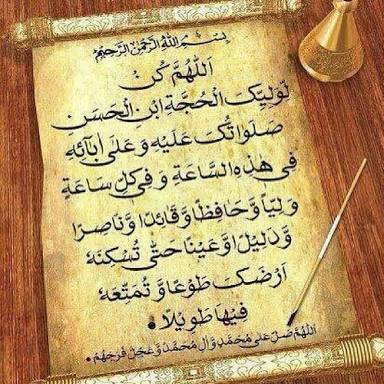 بِسْمِ اللهِ الرَّحْمٰنِ الرَّحِيْمِ
اَللّٰهُمَّ كُنْ
لِّوَلِيِّكَ الْحُجَّةِ ابْنِ الْحَسَنِ
صَلَوَاتُكَ عَلَيْهِ وَ عَلٰى اٰبَآئِهٖ
فِيْ هٰذِهِ السَّاعَةِ وَ فِيْ كُلِّ سَاعَةٍ
وَلِيًّا وَّ حَافِظًا وَّ قَائِدًا وَّ نَاصِرًا
وَّ دَلِيْلًا وَّ عَيْنًا حَتّٰى تُسْكِنَهٗ
اَرْضَكَ طَوْعًا وَّ تُمَتِّعَهٗ
فِيْهَا طَوِيْلًا۔
اَللّٰهُمَّ صَلِّ عَلٰى مُحَمَّدٍ وَّ اٰلِ مُحَمَّدٍ وَّ عَجِّلْ فَرَجَهُمْ۔